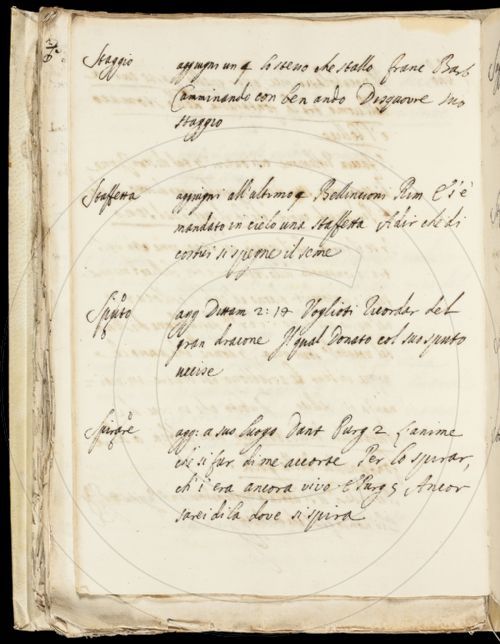 Staggio aggiugni un § lo stesso che stallo franc Barb
Camminando con ben ando Disquovre suo
staggio
Staffetta aggiugni all'altimo § Bellincioni Rim E s'è
mandato in cielo una staffetta A dir che di
costui si spegne il seme
Sputo agg Dittam 2: 14 Voglioti ricordar del
gran dracone Il qual Donato col suo sputo
uccise
Spirare agg: a suo luogo Dant Purg 2 L'anime
che si fur di me accorte Per lo spirar,
ch'i era ancora vivo E Purg 5 Ancor
sarei di la dove si spira